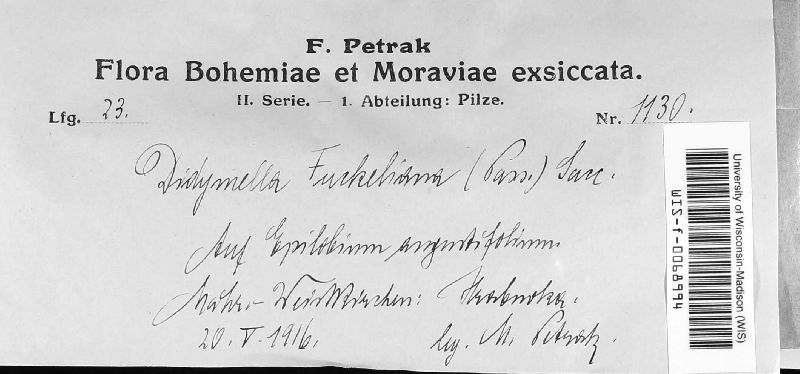 F. Petrak
Flora Bohemiae et Moraviae exsiccata.
II. Serie. — 1. Abteilung: Pilze.
Lfg. 23.
Nr. 1130.
Didymella Fuckeliana (Pass.) Sacc.
Auf Epilobium angustifolium.
Mähr.-Weisskirchen: Hrabuvka.
20. V. 1916.
leg. M. Petrak.
University of Wisconsin-Madison (WIS)
WIS-f-0068994